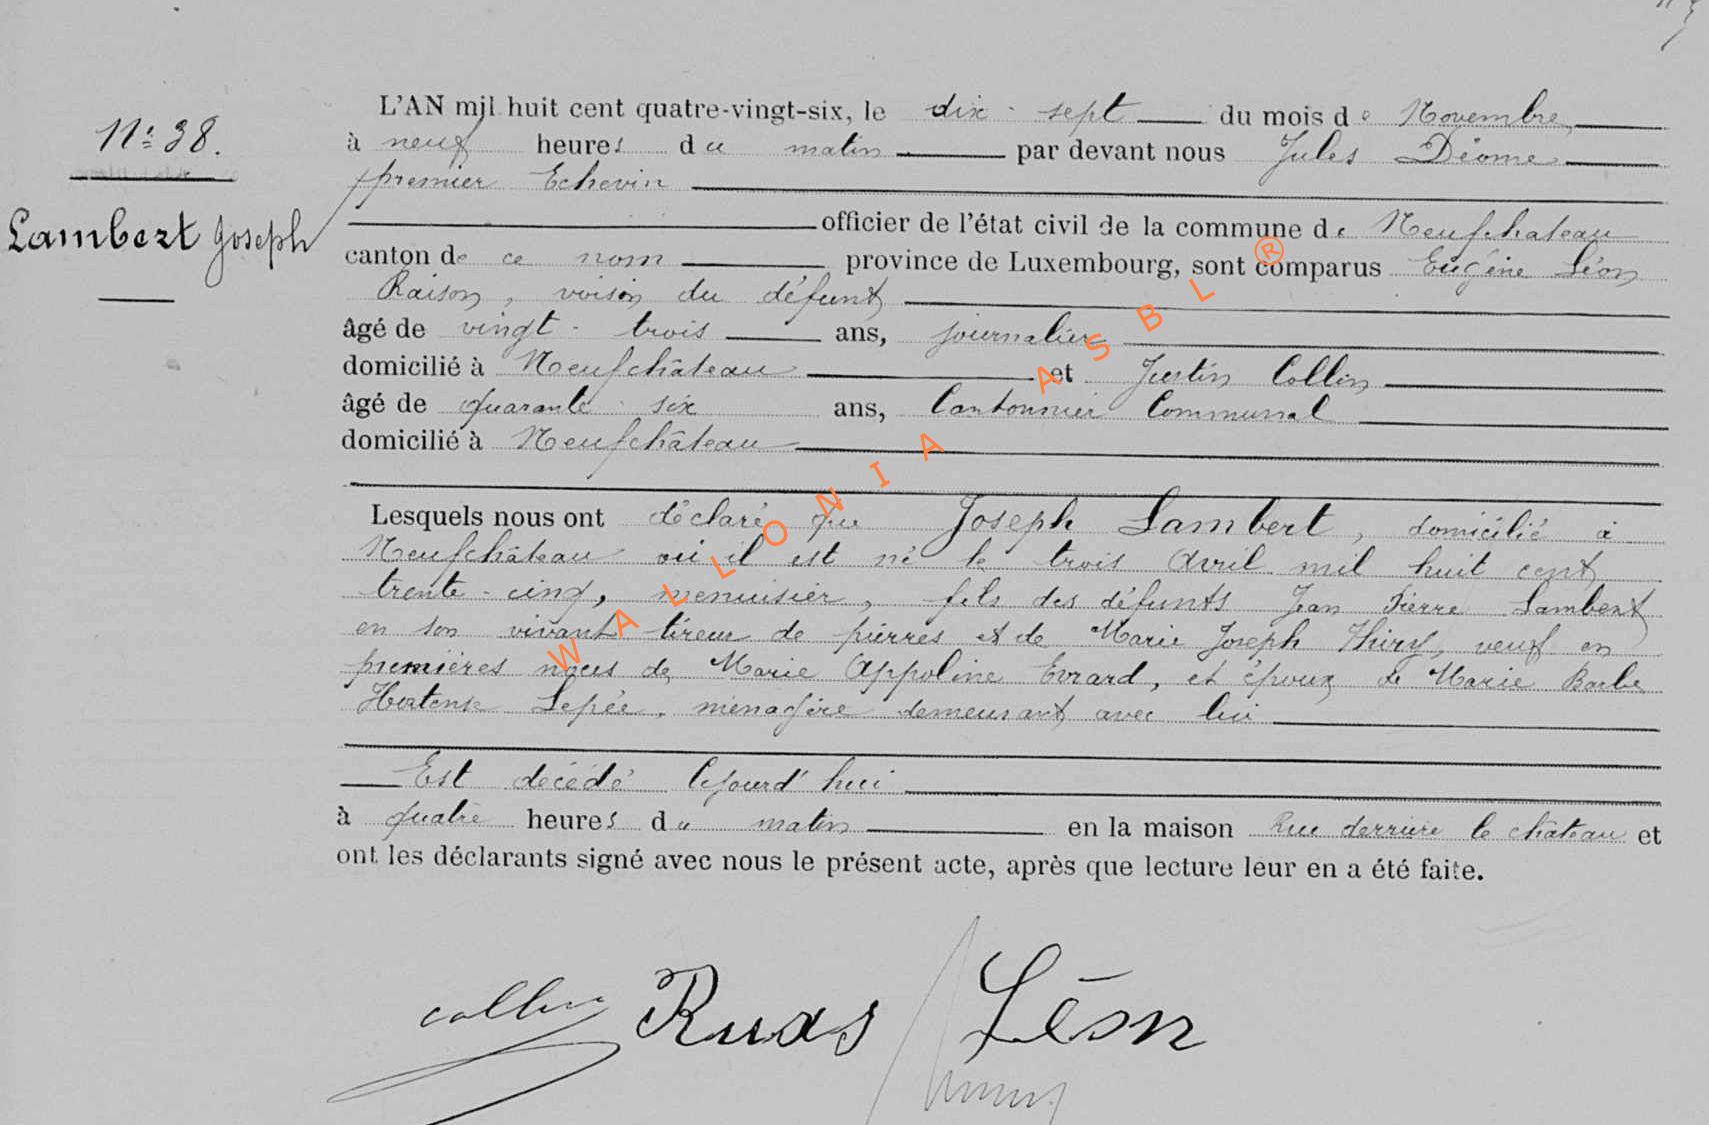 N° 38.
Lambert Joseph
L'AN mil huit cent quatre-vingt-six, le dix-sept du mois de Novembre,
à neuf heures du matin par devant nous Jules Déome
premier Echevin
officier de l'état civil de la commune de Neufchateau
canton de ce nom province de Luxembourg, sont comparus Eugène Léon
Raison, voisin du défunt
âgé de vingt-trois ans, journalier
domicilié à Neufchâteau et Justin Collin
âgé de quarante-six ans, Cantonnier Communal
domicilié à Neufchâteau
Lesquels nous ont déclaré que Joseph Lambert, domicilié à
Neufchâteau où il est né le trois Avril mil huit cent
trente-cinq, menuisier, fils des défunts Jean Pierre Lambert
en son vivant tireur de pierres et de Marie Joseph Thiry, veuf en
premières noces de Marie Appoline Evrard, et époux de Marie Barbe
Hortense Lepée, ménagère demeurant avec lui
Est décédé Cejourd'hui
à quatre heures du matin en la maison Rue derrière le château et
ont les déclarants signé avec nous le présent acte, après que lecture leur en a été faite.
collin Léon
WALLONIA ASBL ®